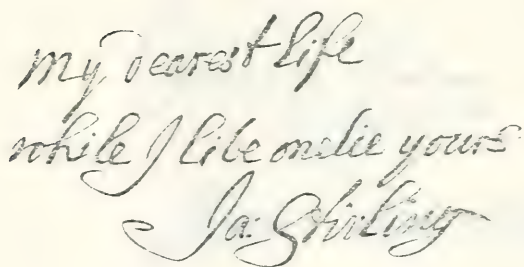 my dearest life
while I live onelie yours
Ja: Stirling